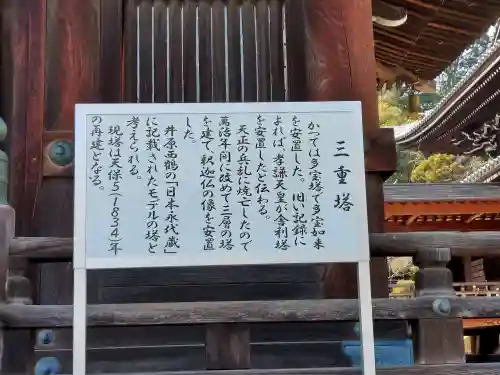 三重塔
かつては多宝塔で多宝如来
を安置した。旧い記録に
よれば、孝謙天皇が舎利塔
を安置したと伝わる。
天正の兵乱に焼亡したので
萬治年間に改めて三層の塔
を建て、釈迦仏の像を安置
した。
井原西鶴の「日本永代蔵」
に記載されたモデルの塔と
考えられる。
現塔は天保5(1834)年
の再建となる。